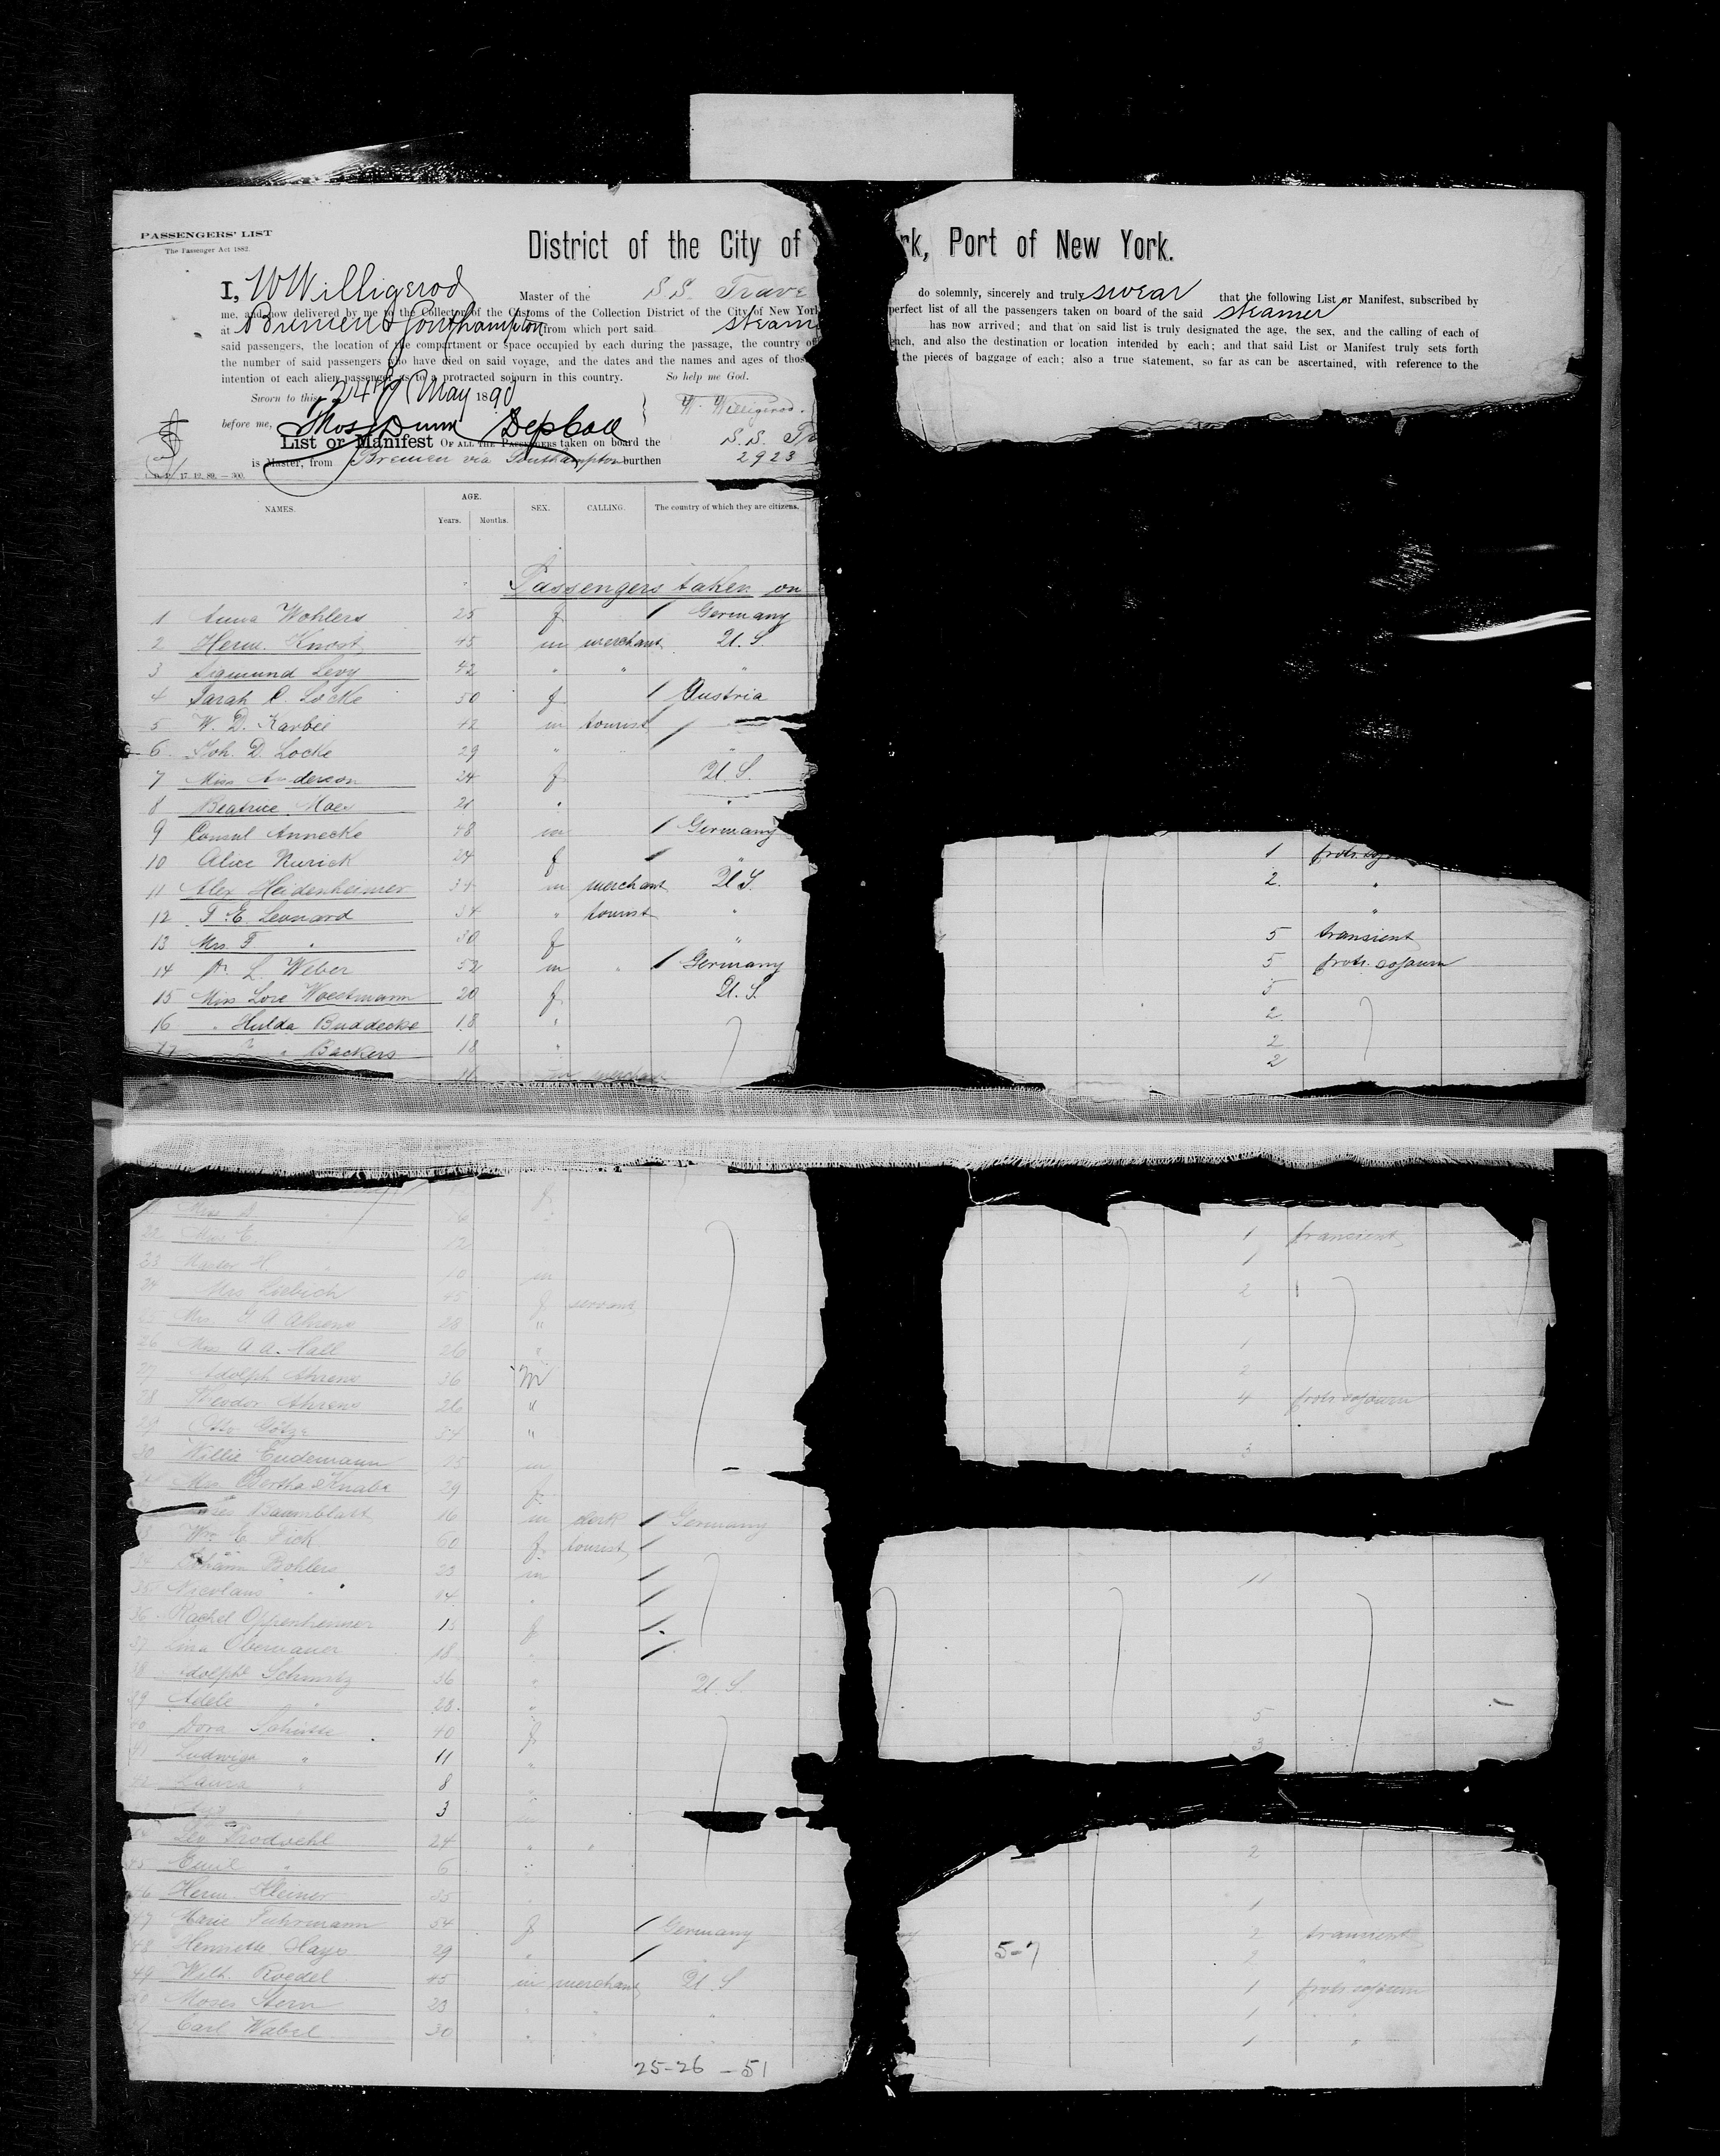 PASSENGERS' LIST
The Passenger Act 1882.
District of the City of rk, Port of New York.
I, W Willigerod Master of the S.S. Trave do solemnly, sincerely and truly swear that the following List or Manifest, subscribed by
me, and now delivered by me to the Collector of the Customs of the Collection District of the City of New York perfect list of all the passengers taken on board of the said steamer
at Bremen & Southampton from which port said steam has now arrived; and that on said list is truly designated the age, the sex, and the calling of each of
said passengers, the location of the compartment or space occupied by each during the passage, the country of each, and also the destination or location intended by each; and that said List or Manifest truly sets forth
the number of said passengers who have died on said voyage, and the dates and the names and ages of those the pieces of baggage of each; also a true statement, so far as can be ascertained, with reference to the
intention of each alien passenger as to a protracted sojourn in this country. So help me God.
Sworn to this 24th May 1890 W. Willigerod.
before me, Thos Dunn Dep Coll
List or Manifest OF ALL THE PASSENGERS taken on board the S.S. Tr
is Master, from Bremen via Southampton burthen 2923
17. 12. 89. — 300.
NAMES. AGE. Years. Months. SEX. CALLING. The country of which they are citizens.
Passengers taken on
1 Anna Wohlers 25 f / Germany
2 Herm. Knost 45 m merchant U.S.
3 Sigmund Levy 42 " " "
4 Sarah C. Locke 50 f / Austria
5 W. D. 42 m tourist /
6 Joh. D. Locke 29 " " / "
7 Miss Anderson 24 f U.S.
8 Beatrice Maes 21 " "
9 Consul Annecke 48 m / Germany 1 protr. soj
10 Alice 24 f / " 2.
11 Alex Heidenheimer 34 m merchant U.S. "
12 F. E. Leonard 34 " tourist " 5 transient
13 Mrs. F " 30 f " 5 protr. sojourn
14 Dr. L. Weber 52 m " / Germany 5
15 Miss Lore Woestmann 20 f U.S. 2
16 " Hulda Buddecke 18 " 2
17 " " Backers 18 " 2
m merchant
f
Miss S. "
22 Miss E. 12 1 transient
23 Master H. " 10 m 1
24 Mrs Liebich 45 f servant 2
25 Mrs. G A Ahrens 28 "
26 Mrs A. A. Hall 26 " 1
27 Adolph Ahrens 36 M 2
28 Theodor Ahrens 26 " 4 protr. sojourn
29 Otto Götze 54 "
30 Willie Endemann 15 m 3
Mrs Bertha Knabe 29 f
Baumblatt 16 m clerk / Germany
33 E. Fick 60 f tourist /
34 Johann Bohlers 23 m / 11
35 Nicolaus " 14 " /
36 Rachel Oppenheimer f /
37 Lina Obernauer 18 " /
38 Adolphe Schmitz 36 " U.S.
39 Adele " 28 " 5
40 Dora 40 f 3
41 Ludwiga " 11 "
42 Laura " 8 "
3
24 " " 2
45 Emil " 6 "
46 Herm. Kleiner 35 " 1
47 Marie Fuhrmann 54 f / Germany 2 transient
48 Henriette Hays 29 " / " 5-7 2 "
49 Wilh. Roedel 45 m merchant U.S 1 protr. sojourn
50 Moses Stern 23 " " " 1 "
51 Carl Wabel 30 " " " 1 "
25-26 — 51